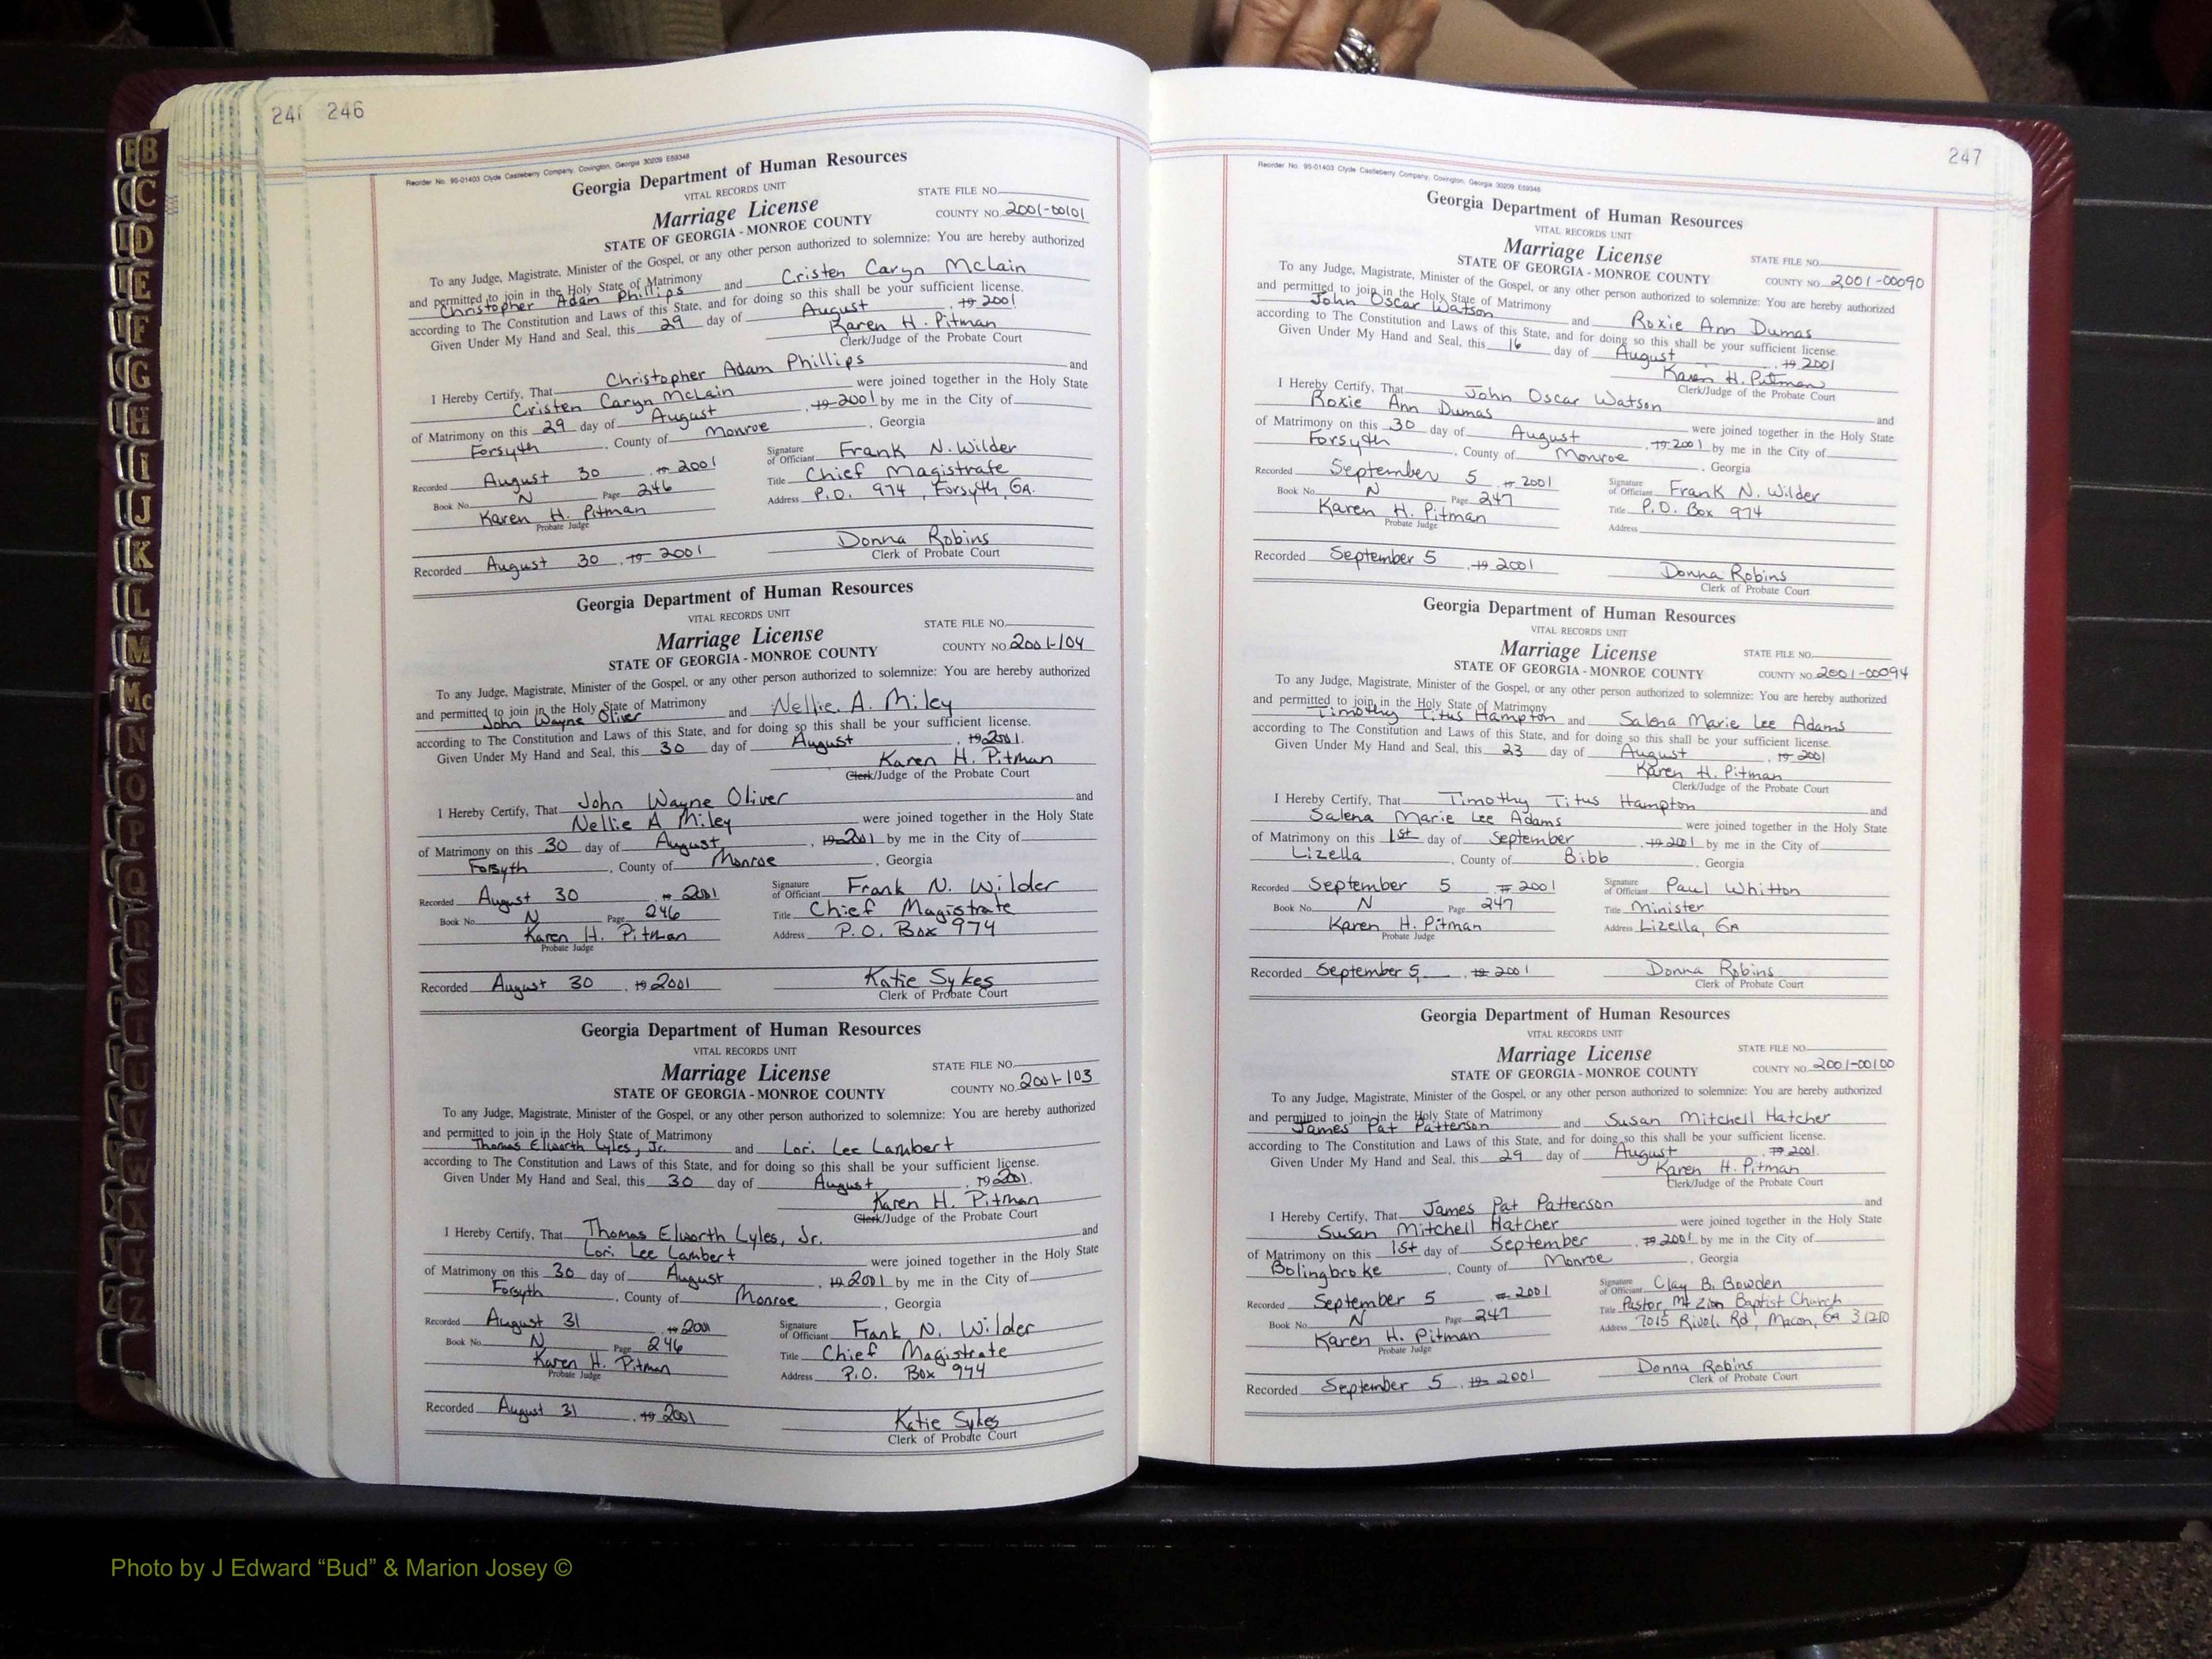 B
C
D
E
F
G
H
I
J
K
L
M
Mc
N
O
P
Q
R
S
T
U
V
W
X
Y
Z
24 246
Reorder No. 95-01403 Clyde Castleberry Company, Covington, Georgia 30209 E59348
Georgia Department of Human Resources
VITAL RECORDS UNIT
STATE FILE NO.
Marriage License
COUNTY NO. 2001-00101
STATE OF GEORGIA - MONROE COUNTY
To any Judge, Magistrate, Minister of the Gospel, or any other person authorized to solemnize: You are hereby authorized
and permitted to join in the Holy State of Matrimony
Christopher Adam Phillips and Cristen Caryn McLain
according to The Constitution and Laws of this State, and for doing so this shall be your sufficient license.
Given Under My Hand and Seal, this 29 day of August, 19 2001
Karen H. Pitman
Clerk/Judge of the Probate Court
I Hereby Certify, That Christopher Adam Phillips and
Cristen Caryn McLain were joined together in the Holy State
of Matrimony on this 29 day of August, 19 2001 by me in the City of
Forsyth, County of Monroe, Georgia
Recorded August 30 19 2001
Signature of Officiant Frank N. Wilder
Book No. N Page 246
Title Chief Magistrate
Karen H. Pitman
Address P.O. 974, Forsyth, GA.
Probate Judge
Recorded August 30, 19 2001
Donna Robins
Clerk of Probate Court
Georgia Department of Human Resources
VITAL RECORDS UNIT
STATE FILE NO.
Marriage License
COUNTY NO. 2001-104
STATE OF GEORGIA - MONROE COUNTY
To any Judge, Magistrate, Minister of the Gospel, or any other person authorized to solemnize: You are hereby authorized
and permitted to join in the Holy State of Matrimony
John Wayne Oliver and Nellie A. Miley
according to The Constitution and Laws of this State, and for doing so this shall be your sufficient license.
Given Under My Hand and Seal, this 30 day of August, 19 2001.
Karen H. Pitman
Clerk/Judge of the Probate Court
I Hereby Certify, That John Wayne Oliver and
Nellie A Miley were joined together in the Holy State
of Matrimony on this 30 day of August, 19 2001 by me in the City of
Forsyth, County of Monroe, Georgia
Recorded August 30 19 2001
Signature of Officiant Frank N. Wilder
Book No. N Page 246
Title Chief Magistrate
Karen H. Pitman
Address P.O. Box 974
Probate Judge
Recorded August 30, 19 2001
Katie Sykes
Clerk of Probate Court
Georgia Department of Human Resources
VITAL RECORDS UNIT
STATE FILE NO.
Marriage License
COUNTY NO. 2001-103
STATE OF GEORGIA - MONROE COUNTY
To any Judge, Magistrate, Minister of the Gospel, or any other person authorized to solemnize: You are hereby authorized
and permitted to join in the Holy State of Matrimony
Thomas Elworth Lyles, Jr. and Lori Lee Lambert
according to The Constitution and Laws of this State, and for doing so this shall be your sufficient license.
Given Under My Hand and Seal, this 30 day of August, 19 2001.
Karen H. Pitman
Clerk/Judge of the Probate Court
I Hereby Certify, That Thomas Elworth Lyles, Jr. and
Lori Lee Lambert were joined together in the Holy State
of Matrimony on this 30 day of August, 19 2001 by me in the City of
Forsyth, County of Monroe, Georgia
Recorded August 31, 19 2001
Signature of Officiant Frank N. Wilder
Book No. N Page 246
Title Chief Magistrate
Karen H. Pitman
Address P.O. Box 974
Probate Judge
Recorded August 31, 19 2001
Katie Sykes
Clerk of Probate Court
247
Reorder No. 95-01403 Clyde Castleberry Company, Covington, Georgia 30209 E59348
Georgia Department of Human Resources
VITAL RECORDS UNIT
Marriage License
STATE FILE NO.
STATE OF GEORGIA - MONROE COUNTY
COUNTY NO. 2001-00090
To any Judge, Magistrate, Minister of the Gospel, or any other person authorized to solemnize: You are hereby authorized
and permitted to join in the Holy State of Matrimony
John Oscar Watson and Roxie Ann Dumas
according to The Constitution and Laws of this State, and for doing so this shall be your sufficient license.
Given Under My Hand and Seal, this 16 day of August, 19 2001
Karen H. Pitman
Clerk/Judge of the Probate Court
I Hereby Certify, That John Oscar Watson and
Roxie Ann Dumas were joined together in the Holy State
of Matrimony on this 30 day of August, 19 2001 by me in the City of
Forsyth, County of Monroe, Georgia
Recorded September 5, 19 2001
Signature of Officiant Frank N. Wilder
Book No. N Page 247
Title P.O. Box 974
Karen H. Pitman
Address
Probate Judge
Recorded September 5, 19 2001
Donna Robins
Clerk of Probate Court
Georgia Department of Human Resources
VITAL RECORDS UNIT
Marriage License
STATE FILE NO.
STATE OF GEORGIA - MONROE COUNTY
COUNTY NO. 2001-00094
To any Judge, Magistrate, Minister of the Gospel, or any other person authorized to solemnize: You are hereby authorized
and permitted to join in the Holy State of Matrimony
Timothy Titus Hampton and Salena Marie Lee Adams
according to The Constitution and Laws of this State, and for doing so this shall be your sufficient license.
Given Under My Hand and Seal, this 23 day of August, 19 2001
Karen H. Pitman
Clerk/Judge of the Probate Court
I Hereby Certify, That Timothy Titus Hampton and
Salena Marie Lee Adams were joined together in the Holy State
of Matrimony on this 1st day of September, 19 2001 by me in the City of
Lizella, County of Bibb, Georgia
Recorded September 5, 19 2001
Signature of Officiant Paul Whitton
Book No. N Page 247
Title Minister
Karen H. Pitman
Address Lizella, GA
Probate Judge
Recorded September 5, 19 2001
Donna Robins
Clerk of Probate Court
Georgia Department of Human Resources
VITAL RECORDS UNIT
Marriage License
STATE FILE NO.
STATE OF GEORGIA - MONROE COUNTY
COUNTY NO. 2001-00100
To any Judge, Magistrate, Minister of the Gospel, or any other person authorized to solemnize: You are hereby authorized
and permitted to join in the Holy State of Matrimony
James Pat Patterson and Susan Mitchell Hatcher
according to The Constitution and Laws of this State, and for doing so this shall be your sufficient license.
Given Under My Hand and Seal, this 29 day of August, 19 2001.
Karen H. Pitman
Clerk/Judge of the Probate Court
I Hereby Certify, That James Pat Patterson and
Susan Mitchell Hatcher were joined together in the Holy State
of Matrimony on this 1st day of September, 19 2001 by me in the City of
Bolingbroke, County of Monroe, Georgia
Recorded September 5 19 2001
Signature of Officiant Clay B. Bowden
Book No. N Page 247
Title Pastor, Mt Zion Baptist Church
Karen H. Pitman
Address 7015 Rivoli Rd, Macon, GA 31210
Probate Judge
Recorded September 5, 19 2001
Donna Robins
Clerk of Probate Court
Photo by J Edward “Bud” & Marion Josey ©